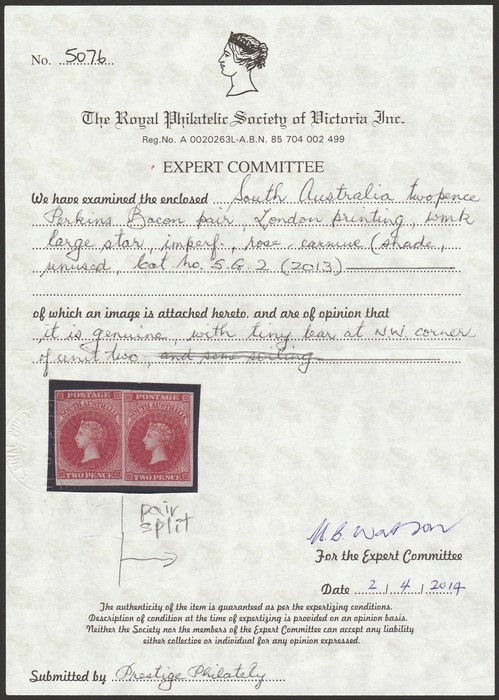 No. 5076
The Royal Philatelic Society of Victoria Inc.
Reg.No. A 0020263L-A.B.N. 85 704 002 499
EXPERT COMMITTEE
We have examined the enclosed South Australia twopence
Perkins Bacon pair, London printing, wmk
large star, imperf., rose-carmine (shade,
unused, Cat no. S.G. 2 (2013)
of which an image is attached hereto, and are of opinion that
it is genuine, with tiny tear at NW corner
of unit two, and some
POSTAGE POSTAGE
SOUTH AUSTRALIA SOUTH AUSTRALIA
TWO PENCE TWO PENCE
pair
split
M.B. Watson
For the Expert Committee
Date 2 / 4 / 2014
The authenticity of the item is guaranteed as per the expertizing conditions.
Description of condition at the time of expertizing is provided on an opinion basis.
Neither the Society nor the members of the Expert Committee can accept any liability
either collective or individual for any opinion expressed.
Submitted by Prestige Philately